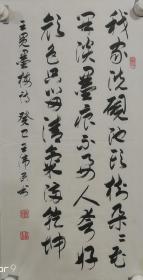 我家洗硯池头树朵朵花
开淡墨痕不要人夸好
颜色只留清氣满乾坤
王冕墨梅诗 癸巳 书